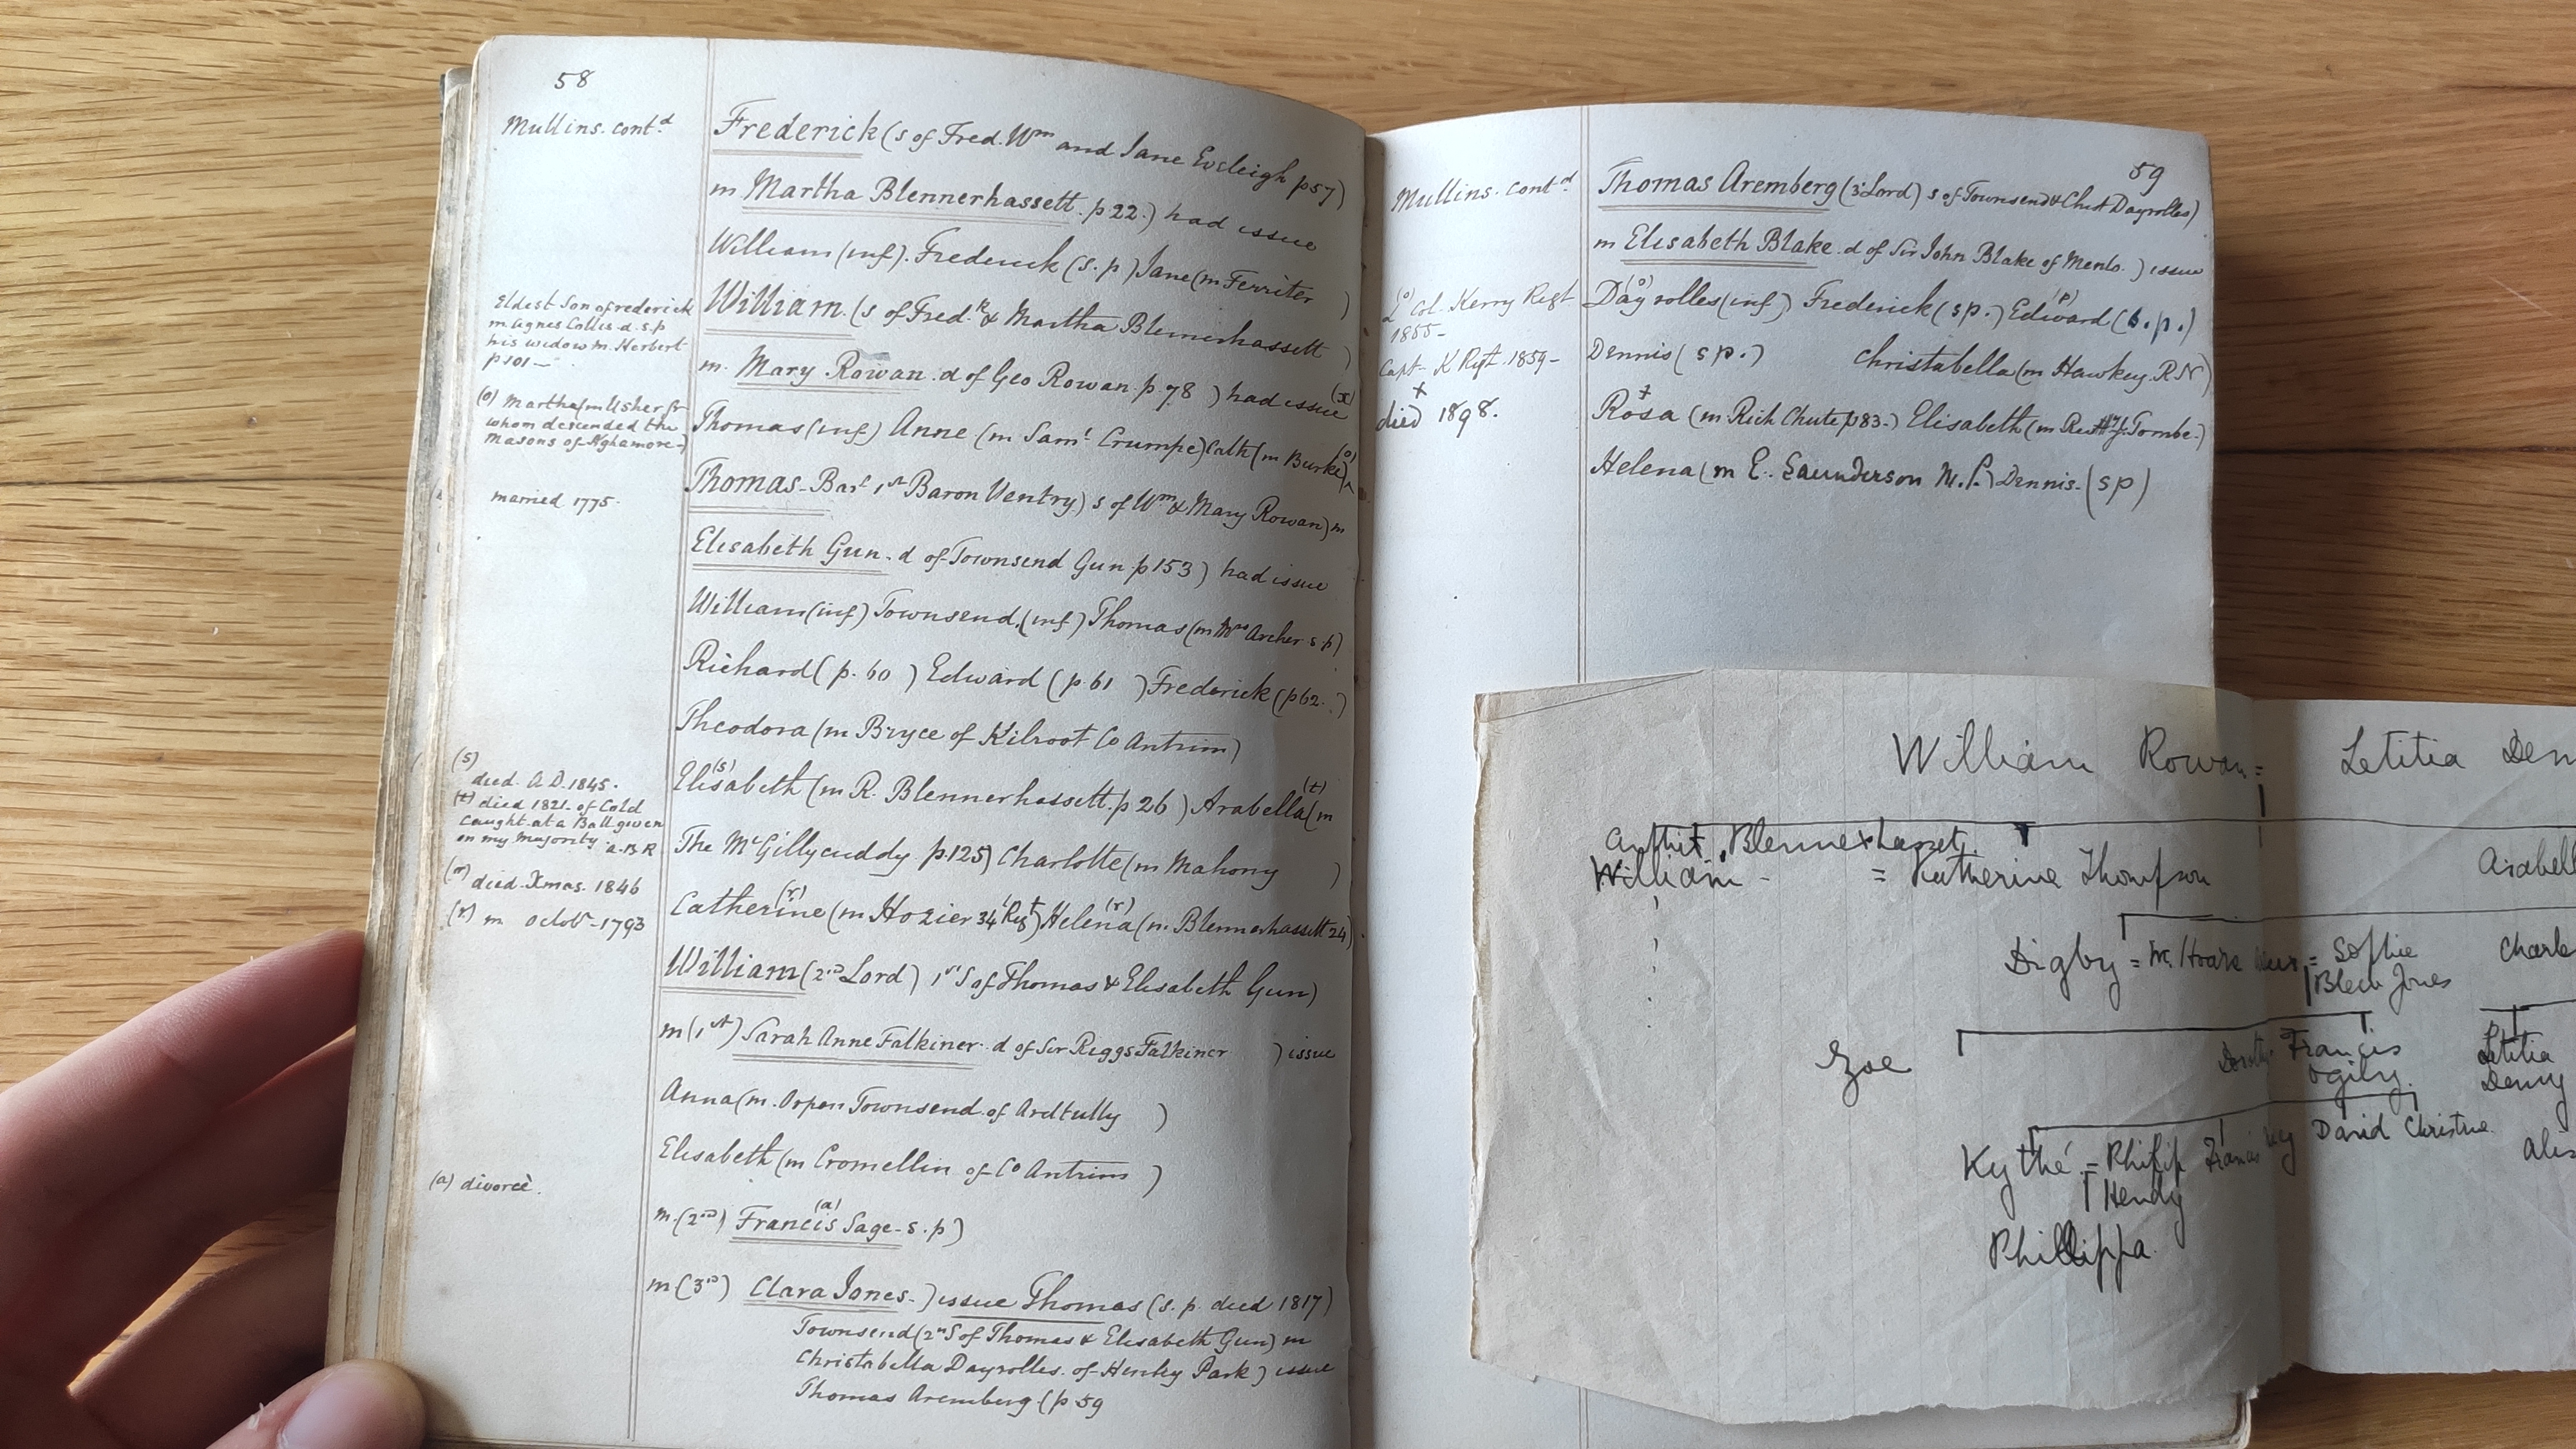 58
Mullins. cont.d
Frederick (s of Fred. Wm and Jane Eveleigh p57)
m Martha Blennerhassett. p 22.) had issue
William (inf). Frederick (s. p) Jane (m Ferriter )
Eldest Son of frederick
m Agnes Collis d. s. p
his widow m. Herbert
p 101 —
William. (s of Fred.k & Martha Blennerhassett )
m. Mary Rowan. d of Geo Rowan. p 78 ) had issue (x)
(o) Martha (m Usher fr
whom descended the
Masons of Aghamore -)
Thomas (inf) Anne (m Saml Crumpe) Cath (m Burke) (o)
married 1775.
Thomas - Bart 1st Baron Ventry) s of Wm & Mary Rowan) m
Elisabeth Gun. d of Townsend Gun p 153 ) had issue
William (inf) Townsend. (inf) Thomas (m Mrs Archer s. p)
Richard ( p. 60 ) Edward ( p 61 ) Frederick (p 62. )
Theodora (m Bryce of Kilroot Co Antrim)
(s) died. A.D. 1845.
(t) died 1821. of Cold
caught at a Ball given
on my Majority. A.B.R
Elisabeth (s) (m R. Blennerhassett. p 26 ) Arabella (t) (m
The McGillycuddy p. 125) Charlotte (m Mahony )
died. Xmas. 1846
(r) m Octobr - 1793
Catherine (r) (m Hozier 34 Regt) Helena (r) (m. Blennerhassett 24)
William (2nd Lord) 1st S of Thomas & Elisabeth Gun)
m (1st) Sarah Anne Falkiner. d of Sir Riggs Falkiner ) issue
Anna (m. Orpen Townsend. of Ardtully )
Elisabeth (m Cromellin of Co Antrim )
(a) divorcè.
m. (2nd) Francis (a) Sage - s. p)
m (3rd) Clara Jones - ) issue Thomas (s. p. died 1817)
Townsend (2nd S of Thomas & Elisabeth Gun) m
Christabella Dayrolles. of Henley Park ) issue
Thomas Aremberg (p 59
59
Mullins. Contd
Thomas Aremberg (3d Lord) s of Townsend & Christ Dayrolles)
m Elisabeth Blake. d of Sir John Blake of Menlo. ) issue
(o) Lt Col. Kerry Regt
1855 -
Dayrolles (o) (inf) Frederick (sp.) Edward (p) (s. p.)
Capt - K Rgt. 1859 -
Dennis ( s p. ) Christabella (m Hawkey. RN)
x
died 1898.
Rosa (m. Rich Chute p 83.) Elisabeth (m Revd Tombe.)
Helena (m E. Saunderson M. P.) Dennis. (sp)
William Rowan = Letitia Den
Blennerhasset.
William - = Katherine Thompson
Arabell
Digby = = Sophie
Blen Jones
Charl
Zoe
Francis
Ogilvy.
Letitia
Denny
Kythé = Philip
Hendy
Francis
David Christine.
Phillippa.